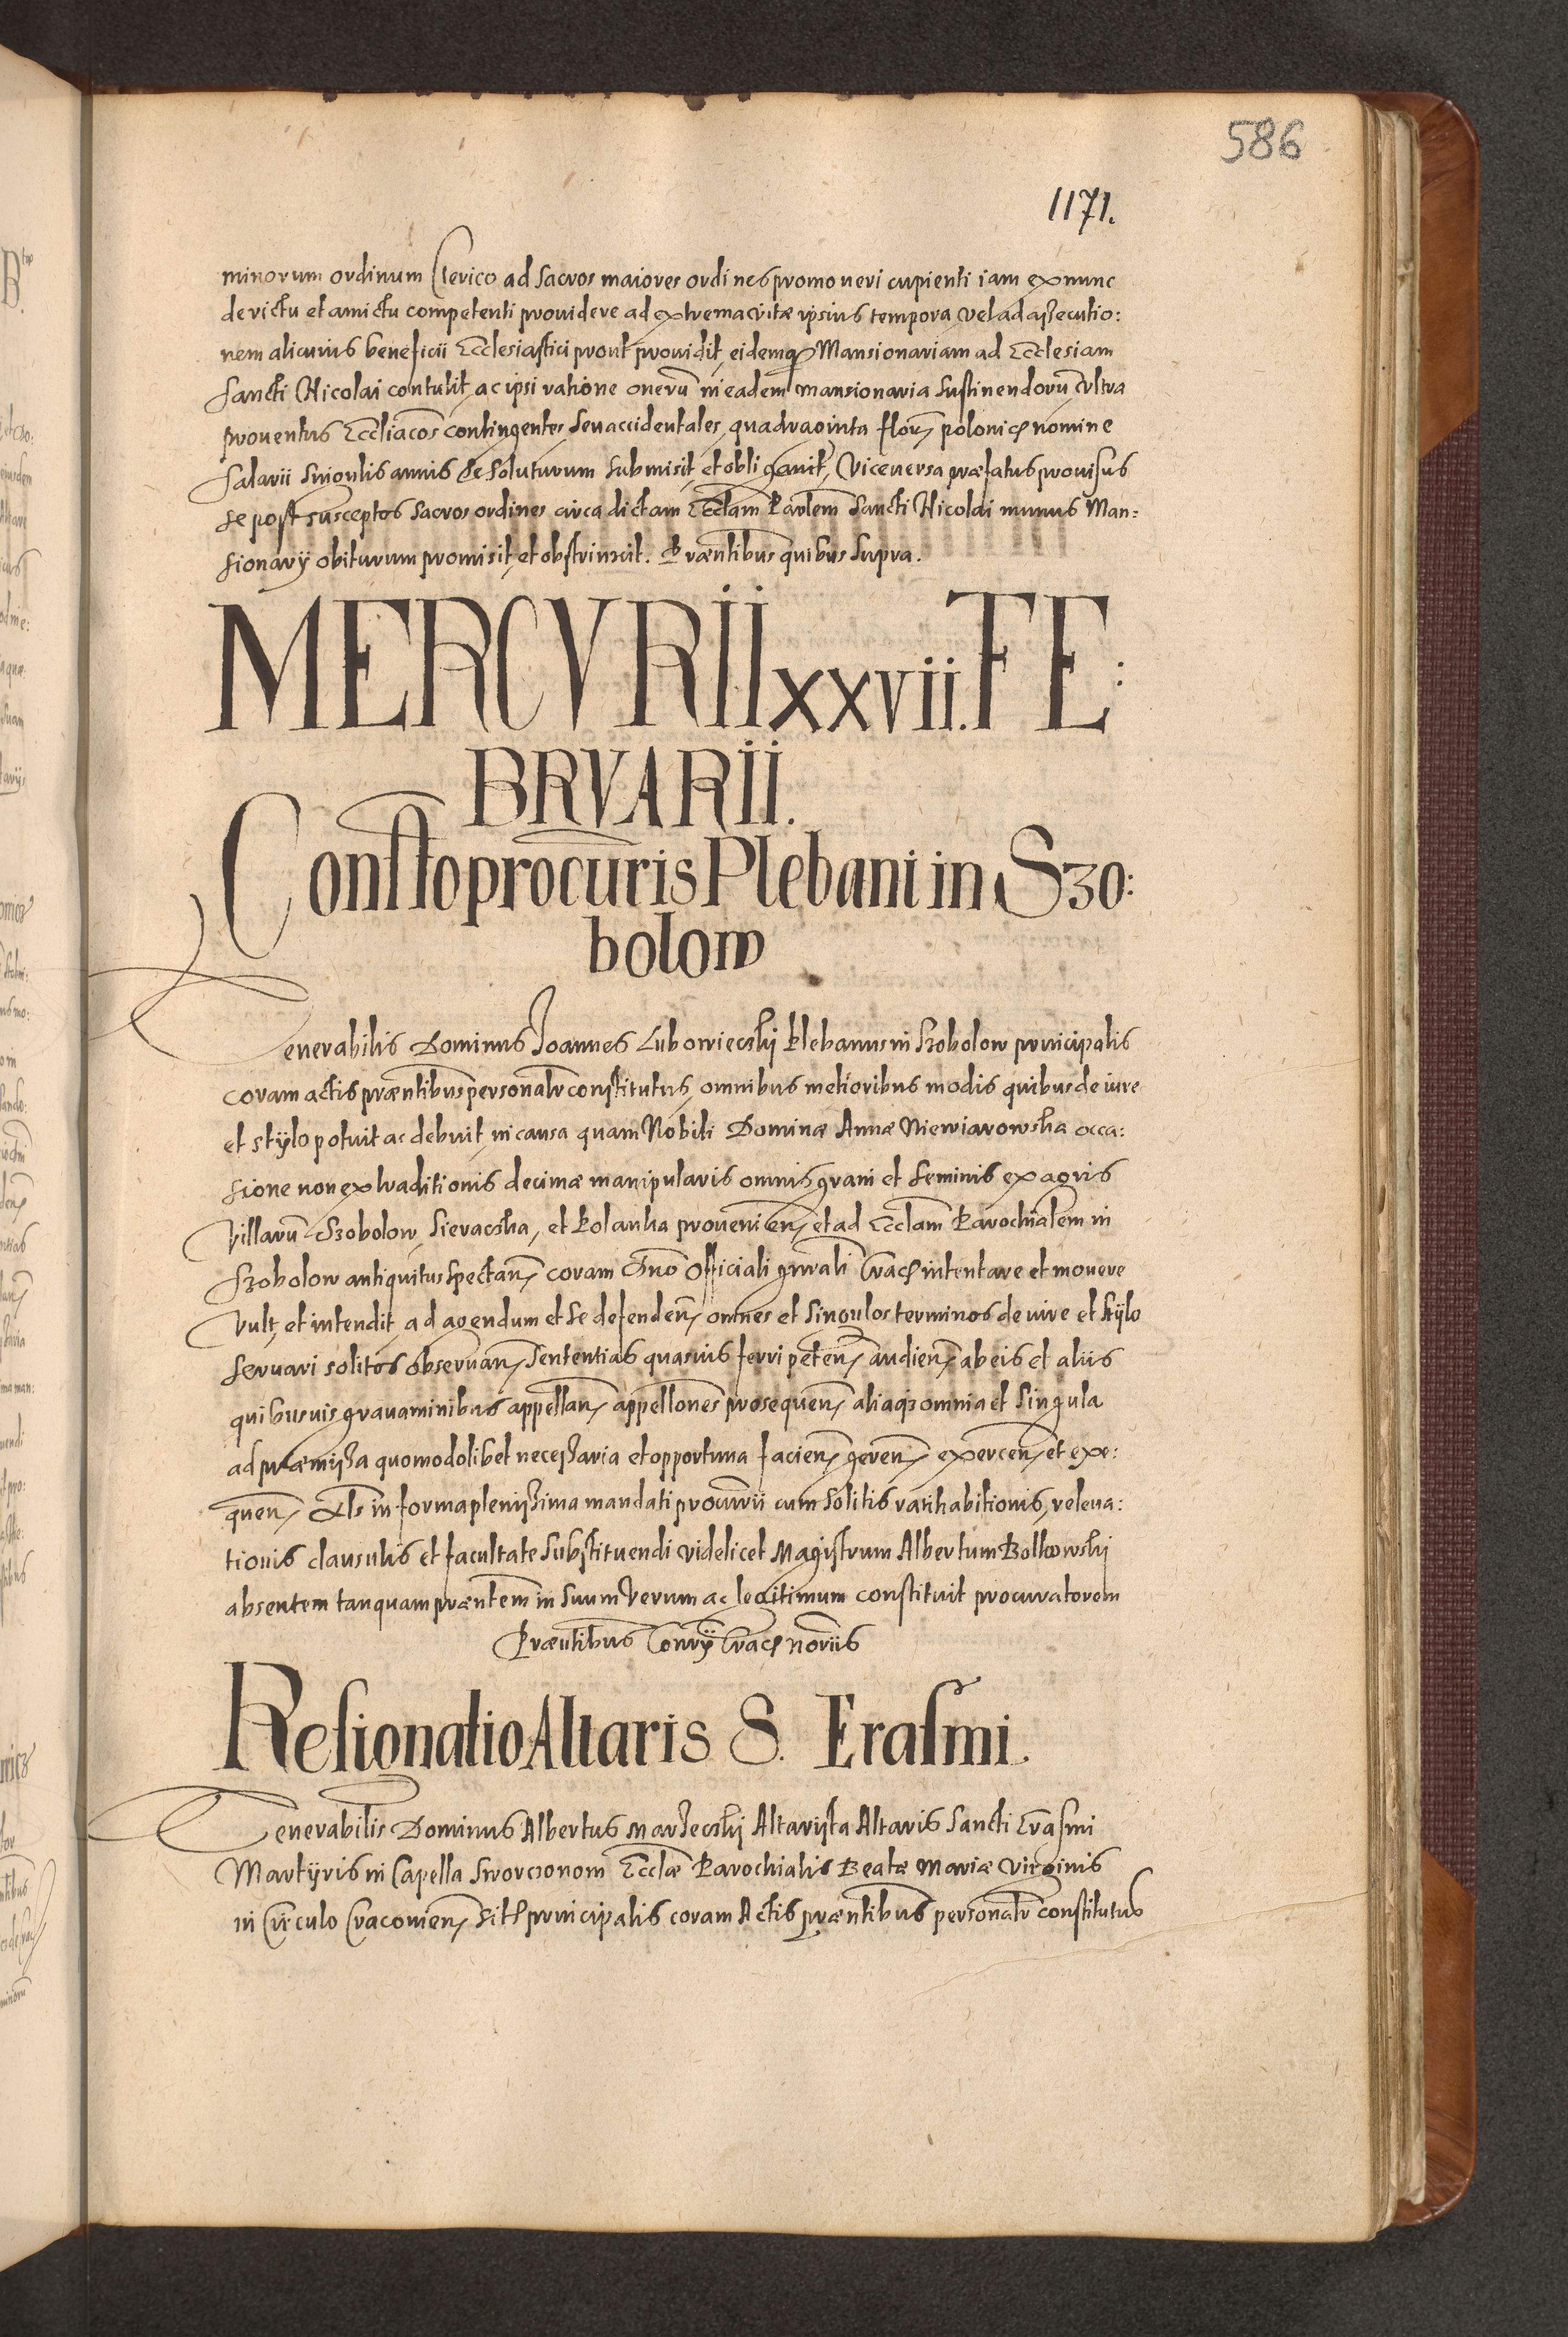 586
1171.
minorum ordinum Clerico ad Sacros maiores ordines promoueri cupienti iam ex nunc
de victu et amictu competenti prouidere ad extrema vitæ ipsius tempora vel ad assecutio:
nem alicuius beneficii Ecclesiastici prout prouidit, eidemq3 Mansionariam ad Ecclesiam
Sancti Nicolai contulit, ac ipsi ratione onerū in eadem mansionaria Sustinendorū vltra
prouentus Eccliacos contingentes, Seu accidentales, quadraginta floren polonicę nomine
Salarii Singulis annis Se Soluturum Submisit, et obligauit, Viceuersa præfatus prouisus
Se post susceptos Sacros ordines circa dictam Ecclam Parlem Sancti Nicolai munus Man:
sionarÿ obiturum promisit, et obstrinxit. Præntibus quibus Supra.
MERCVRII xxvii. FE:
BRVARII.
Constto procuris Plebani in Szo:
bolow
Venerabilis Dominus Joannes Lubowiecski Plebanus in Szobolow principalis
coram actis præntibus personalr constitutus, omnibus melioribus modis quibus de iure
et stÿlo potuit ac debuit, in causa quam Nobili Dominæ Annæ Niewiarowska occa:
sione non extraditionis decimæ manipularis omnis grani et Seminis ex agris
Villarū Szobolow, Sieracska, et Kolanka prouenien, et ad Ecclam Parochialem in
Szobolow antiquitus Spectan, coram Dno Officiali gnrali Crac intentare et mouere
Vult, et intendit, ad agendum et Se defenden, omnes et Singulos terminos de iure et stÿlo
Seruari solitos obseruan, Sententias quasuis ferri peten, audien, ab eis et aliis
quibusuis grauaminibus appellan, appellones prosequen, aliaq3 omnia et Singula
ad præmissa quomodolibet necessaria et opportuna facien, geren, exercen, et exe:
quen, Als in forma plenissima mandati procurii cum Solitis ratihabitionis, releua:
tionis clausulis et facultate Substituendi videlicet Magistrum Albertum Bolkowski
absentem tanquam præntem in Suum Verum ac legitimum constituit procuratorem
Præntibus Conrÿ Crac noriis
Resignatio Altaris S. Erasmi.
Venerabilis Dominus Albertus Marszecski Altarista Altaris Sancti Erasmi
Martÿris in Capella Sworczonom Ecclæ Parochialis Beatæ Mariæ Virginis
in Circulo Cracouien, Sit principalis coram Actis præntibus personalr constitutus